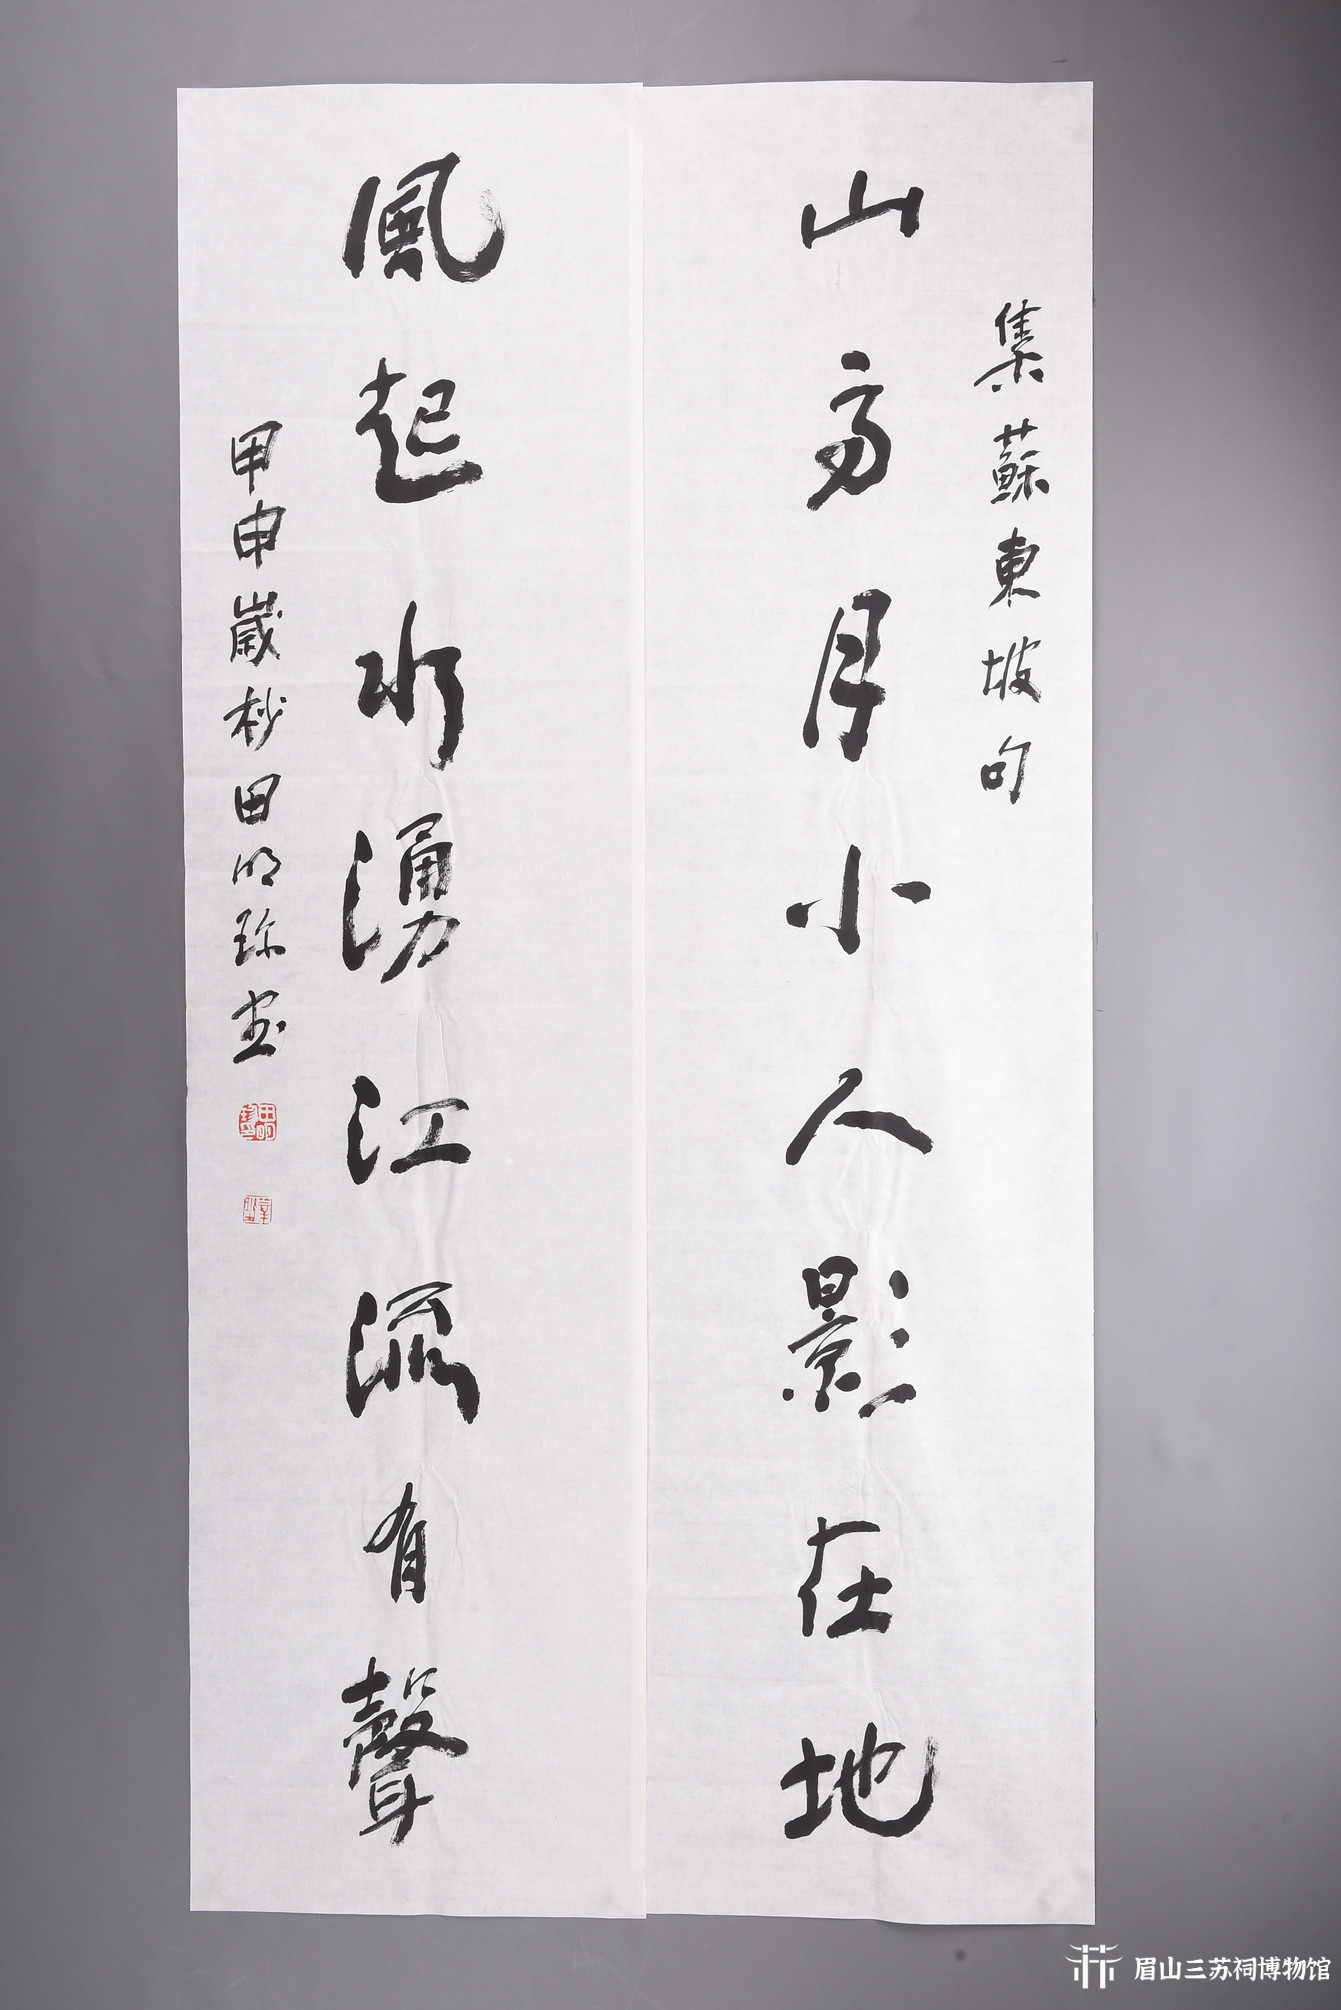 集蘇東坡句
山高月小人影在地
風起水湧江流有聲
甲申歲杪田明珍書
眉山三苏祠博物馆